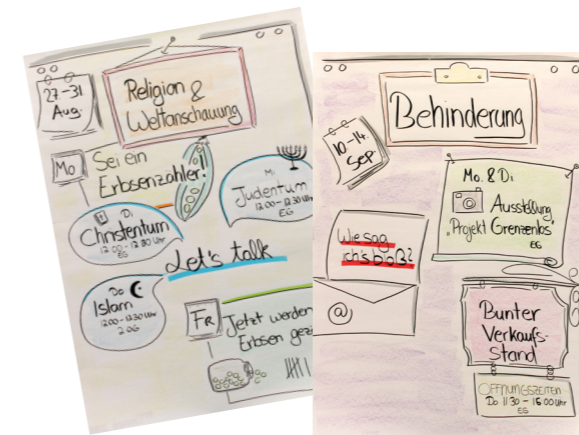 27.-31
Aug.
Religion &
Weltanschauung
Mo
Sei ein
Erbsenzähler!
Mi
Judentum
12.00-12.30 Uhr
EG
Di
Christentum
EG
Let's talk
Do
Islam
12.00-12.30 Uhr
2.OG
FR
Jetzt werden
Erbsen gezä
Behinderung
10-14.
Sep.
Mo. & Di
Ausstellung
"Projekt Grenzenlos"
EG
Wie sag
ich's bloß?
@
Bunter
Verkaufs-
Stand
ÖFFNUNGSZEITEN
Do 11:30 - 16:00 Uhr
EG